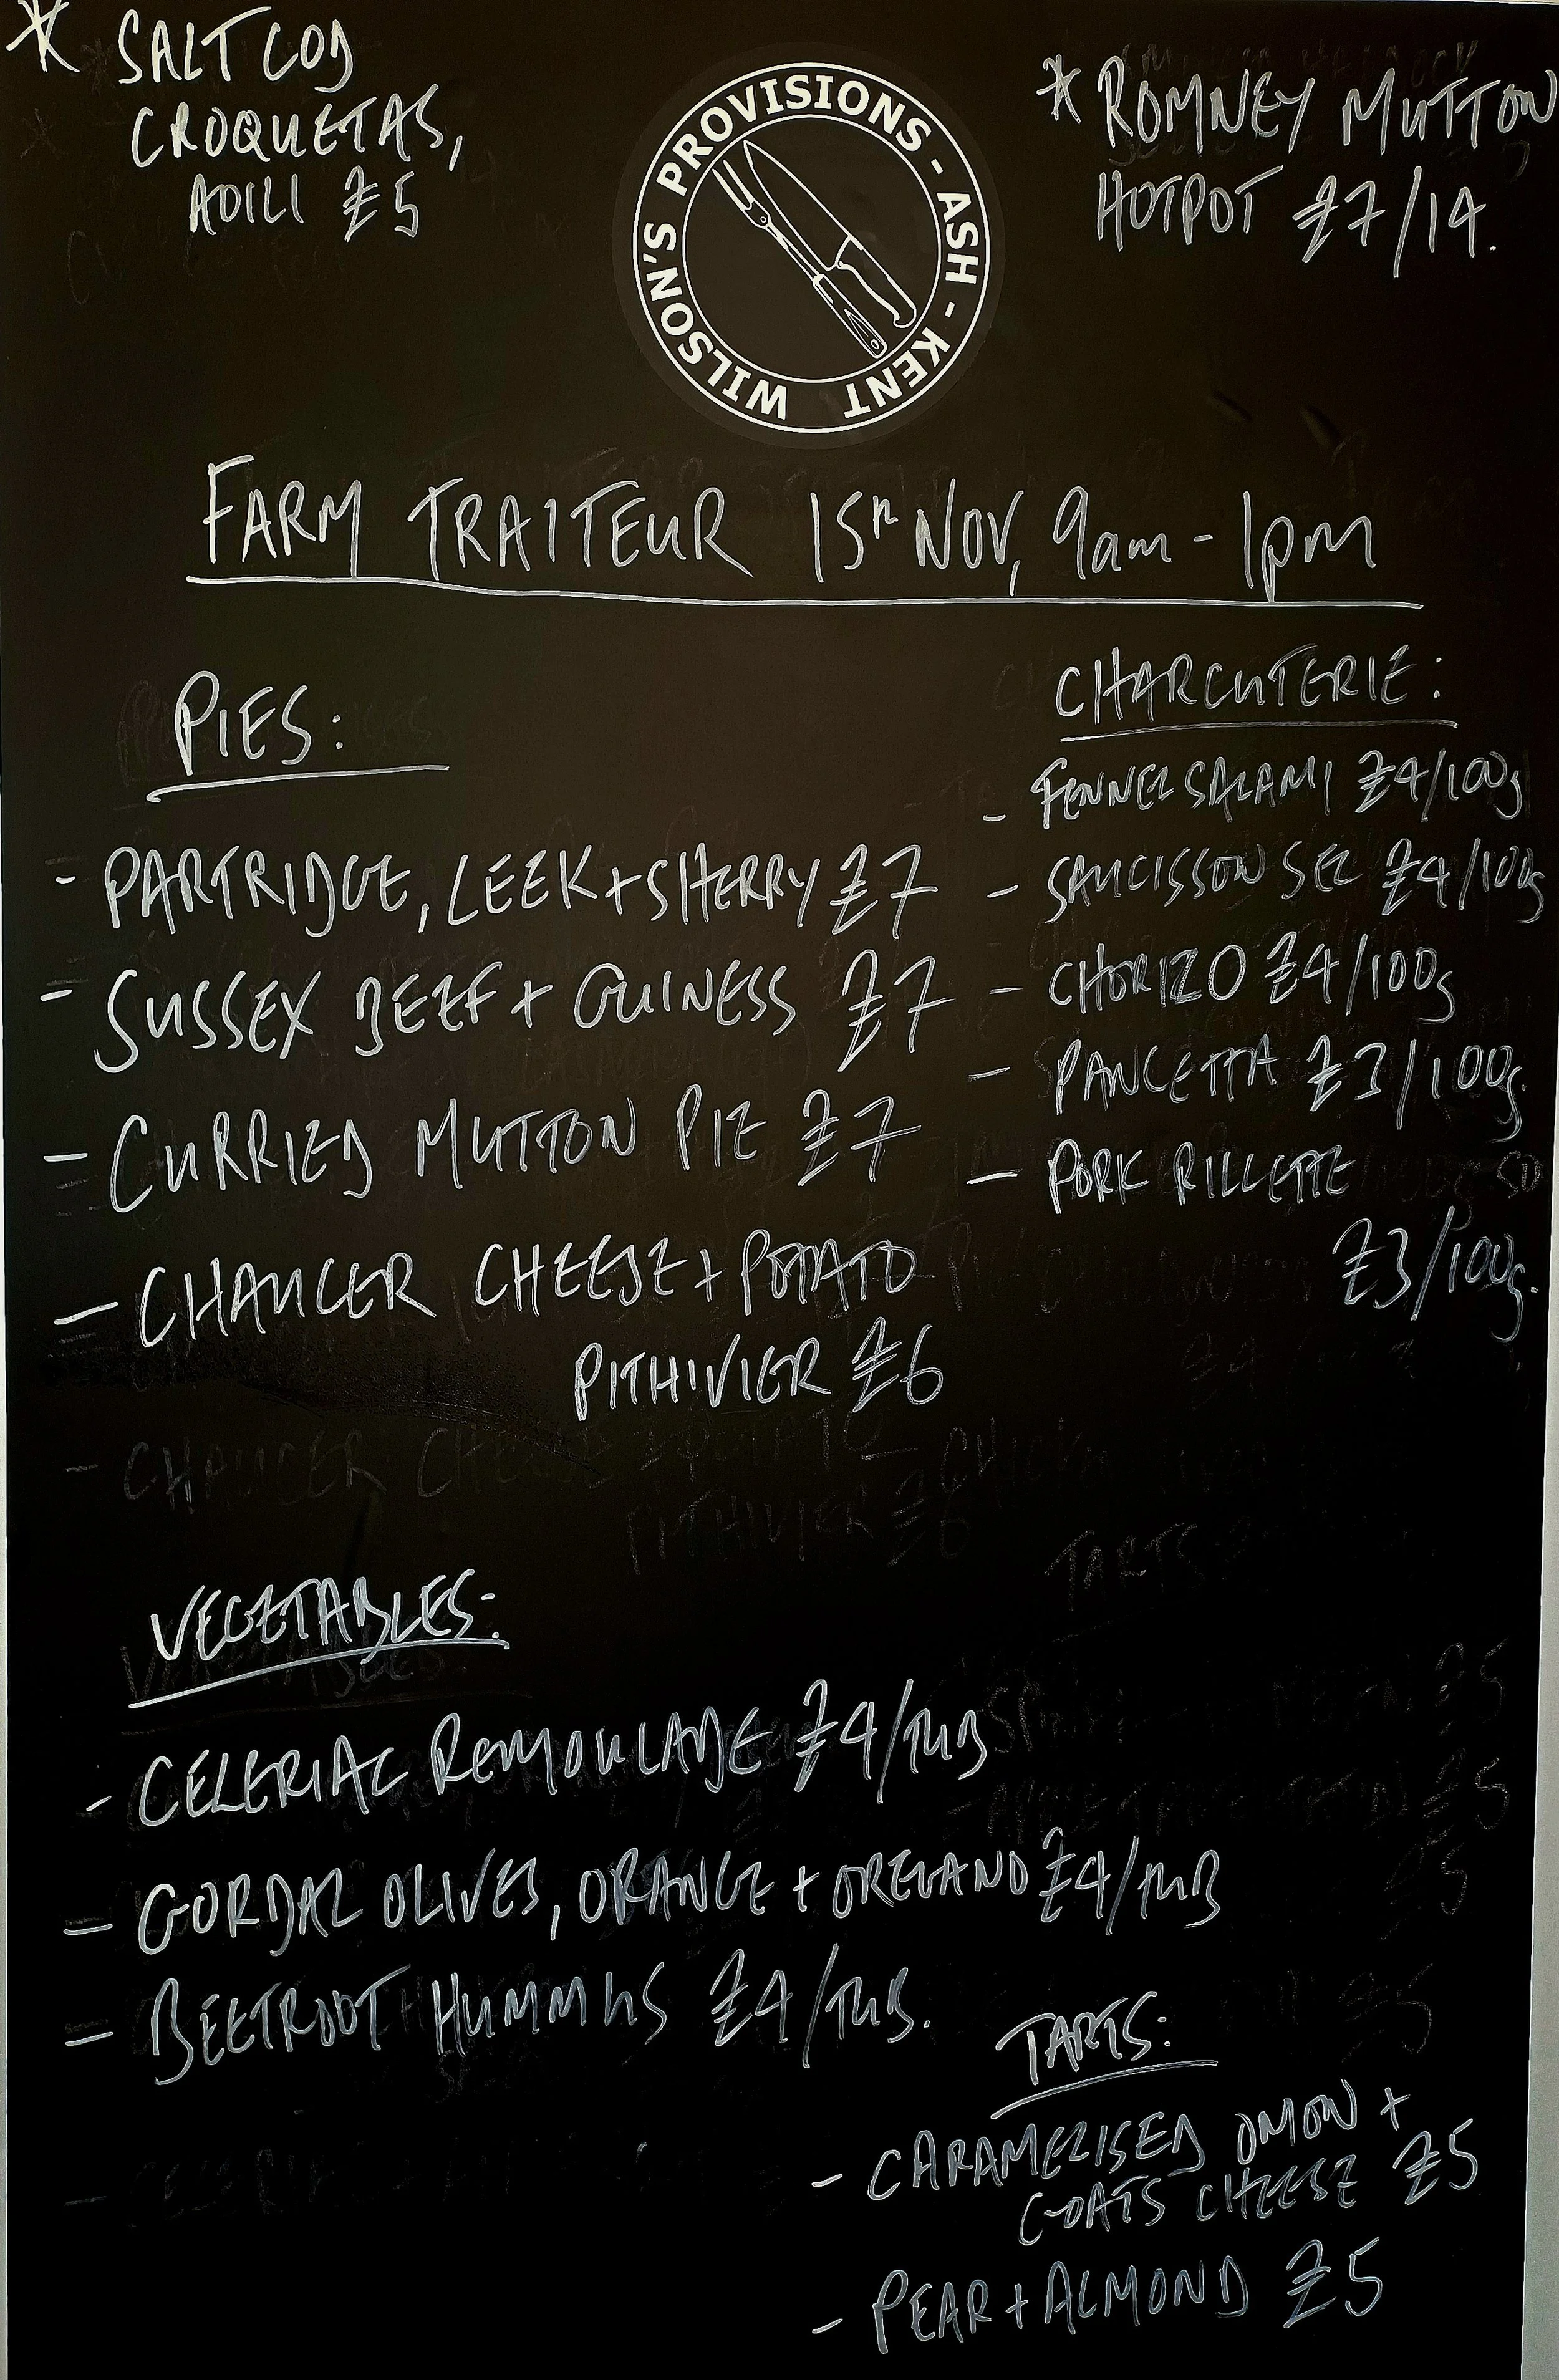 * SALT COD
CROQUETAS,
AOILI £5
WILSON'S PROVISIONS - ASH - KENT
* ROMNEY MUTTON
HOTPOT £7/14.
FARM TRAITEUR 15TH NOV, 9am - 1pm
PIES:
- PARTRIDGE, LEEK + SHERRY £7
- SUSSEX BEEF + GUINESS £7
- CURRIED MUTTON PIE £7
- CHAUCER CHEESE + POTATO
PITHIVIER £6
CHARCUTERIE:
- FENNEL SALAMI £4/100g
- SAUCISSON SEC £4/100g
- CHORIZO £4/100g
- PANCETTA £3/100g.
- PORK RILLETTE
£3/100g.
- CHAUCER CHEESE + POTATO
PITHIVIER £6
TARTS
VEGETABLES:
- CELERIAC REMOULADE £4/TUB
- GORDAL OLIVES, ORANGE + OREGANO £4/TUB
- BEETROOT HUMMUS £4/TUB.
TARTS:
- CARAMELISED ONION +
GOATS CHEESE £5
- PEAR + ALMOND £5